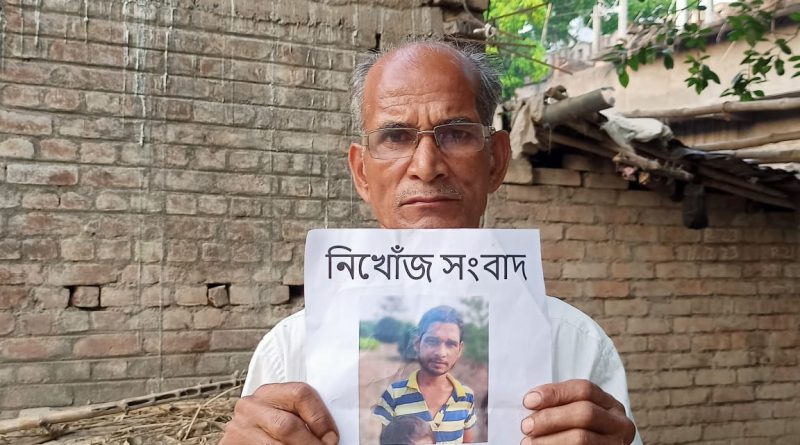 নিখোঁজ সংবাদ